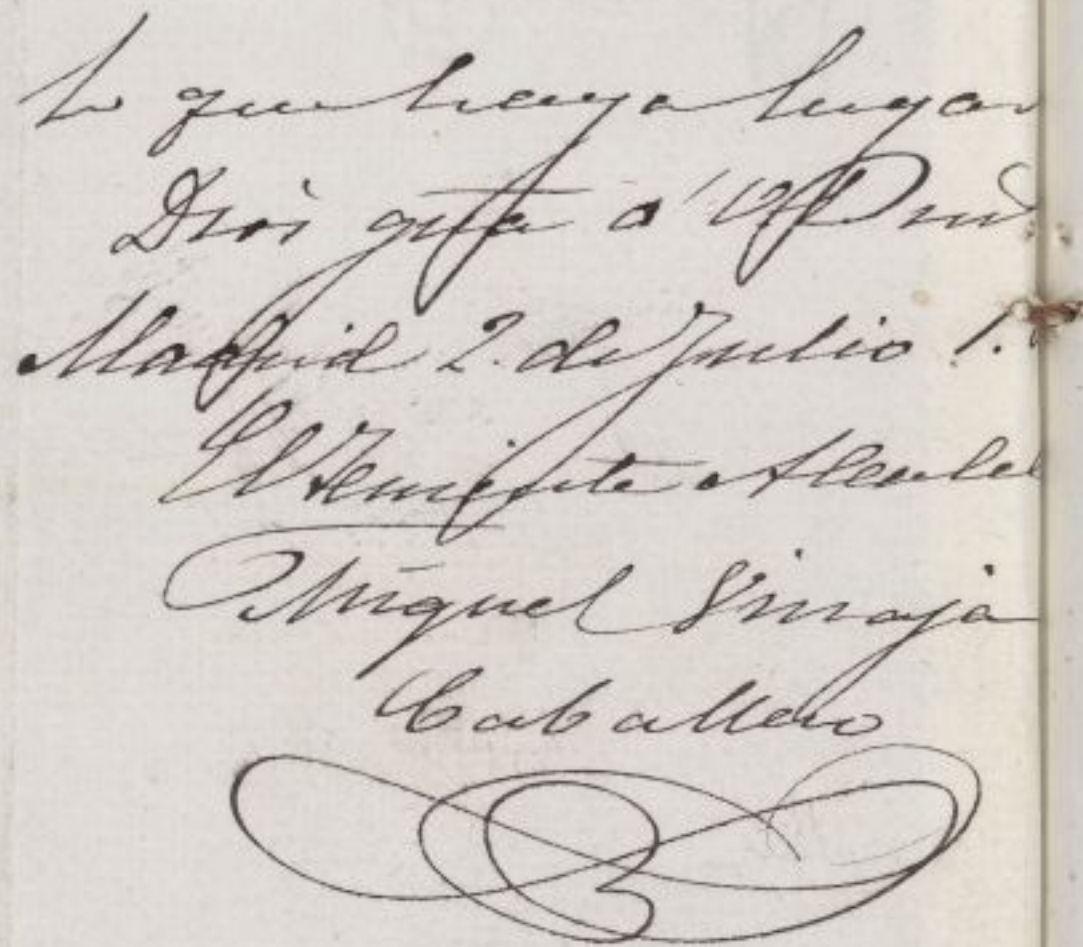 lo que haya lugar
Dios gue a V. md.
Madrid 2. de Julio 1.
El Teniente Alcalde
Miguel Vinaja
Caballero